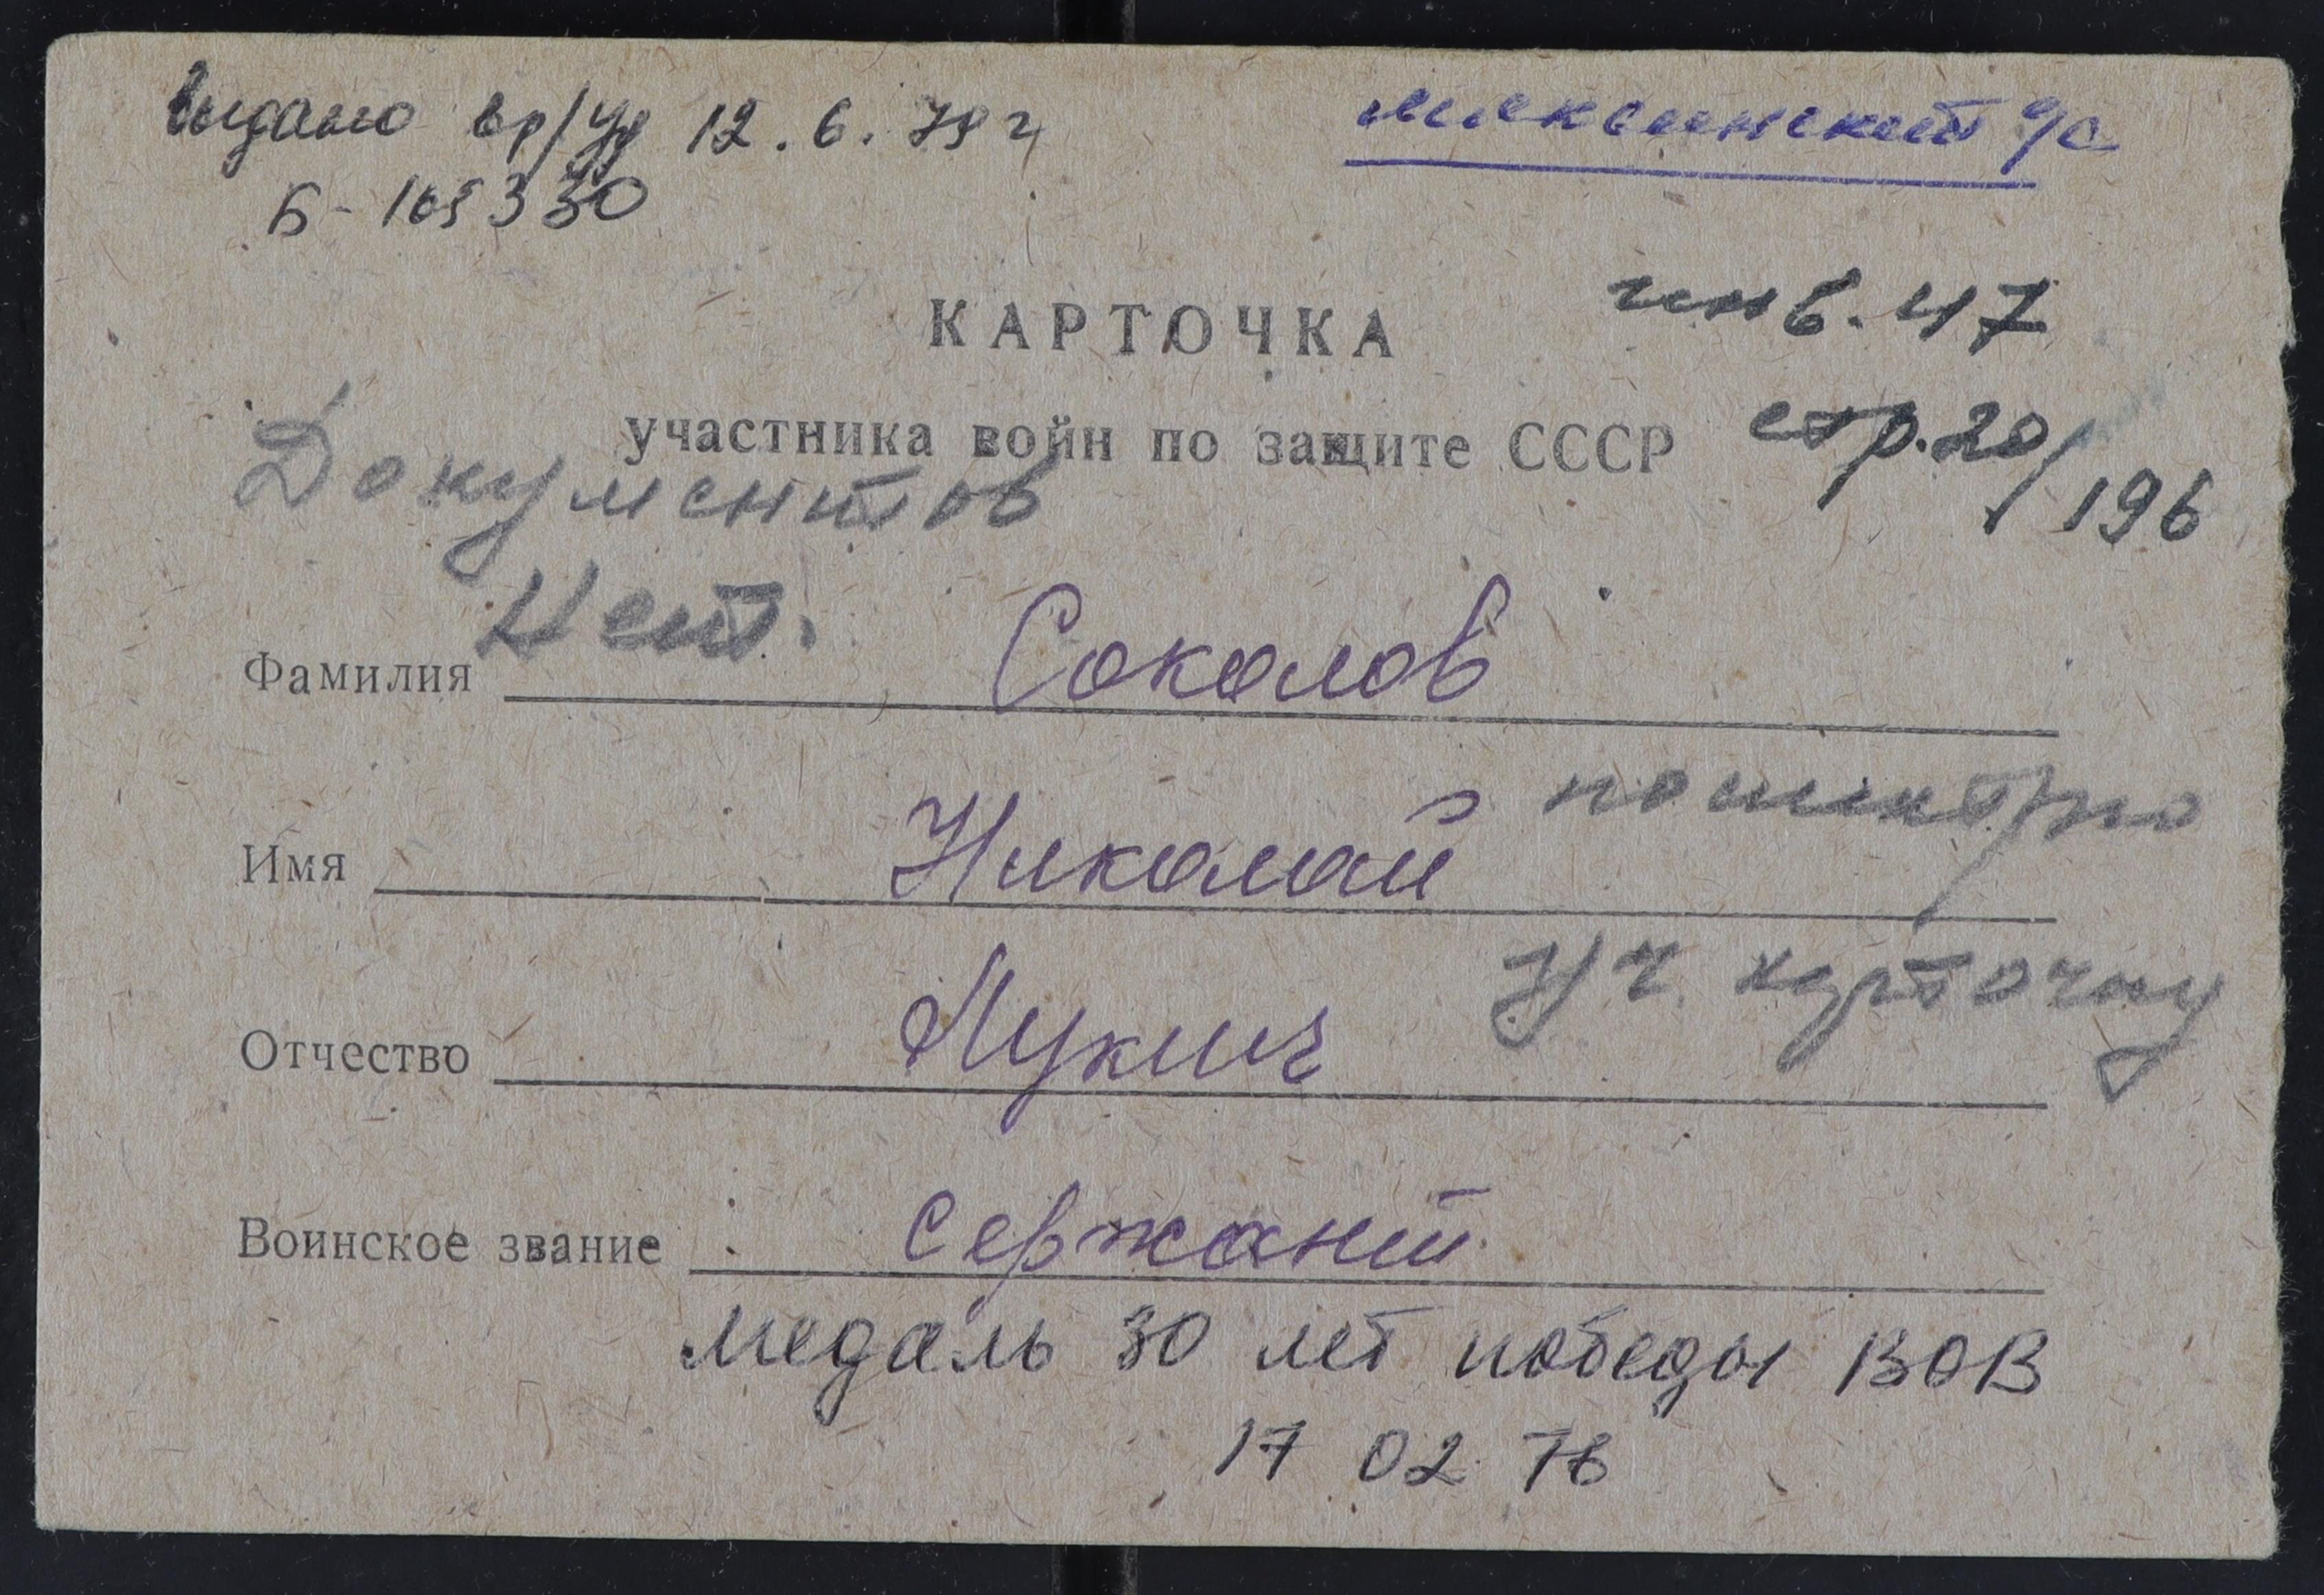 выдано вр/уд 12.6.79 г
Мяксинский с/с
Б-165330
КАРТОЧКА
инв. 47
участника войн по защите СССР
стр. 20/196
Документов
нет.
Фамилия Соколов
Имя Николай
Отчество Лукич
уч карточку
Воинское звание сержант
медаль 30 лет победы ВОВ
17 02 76